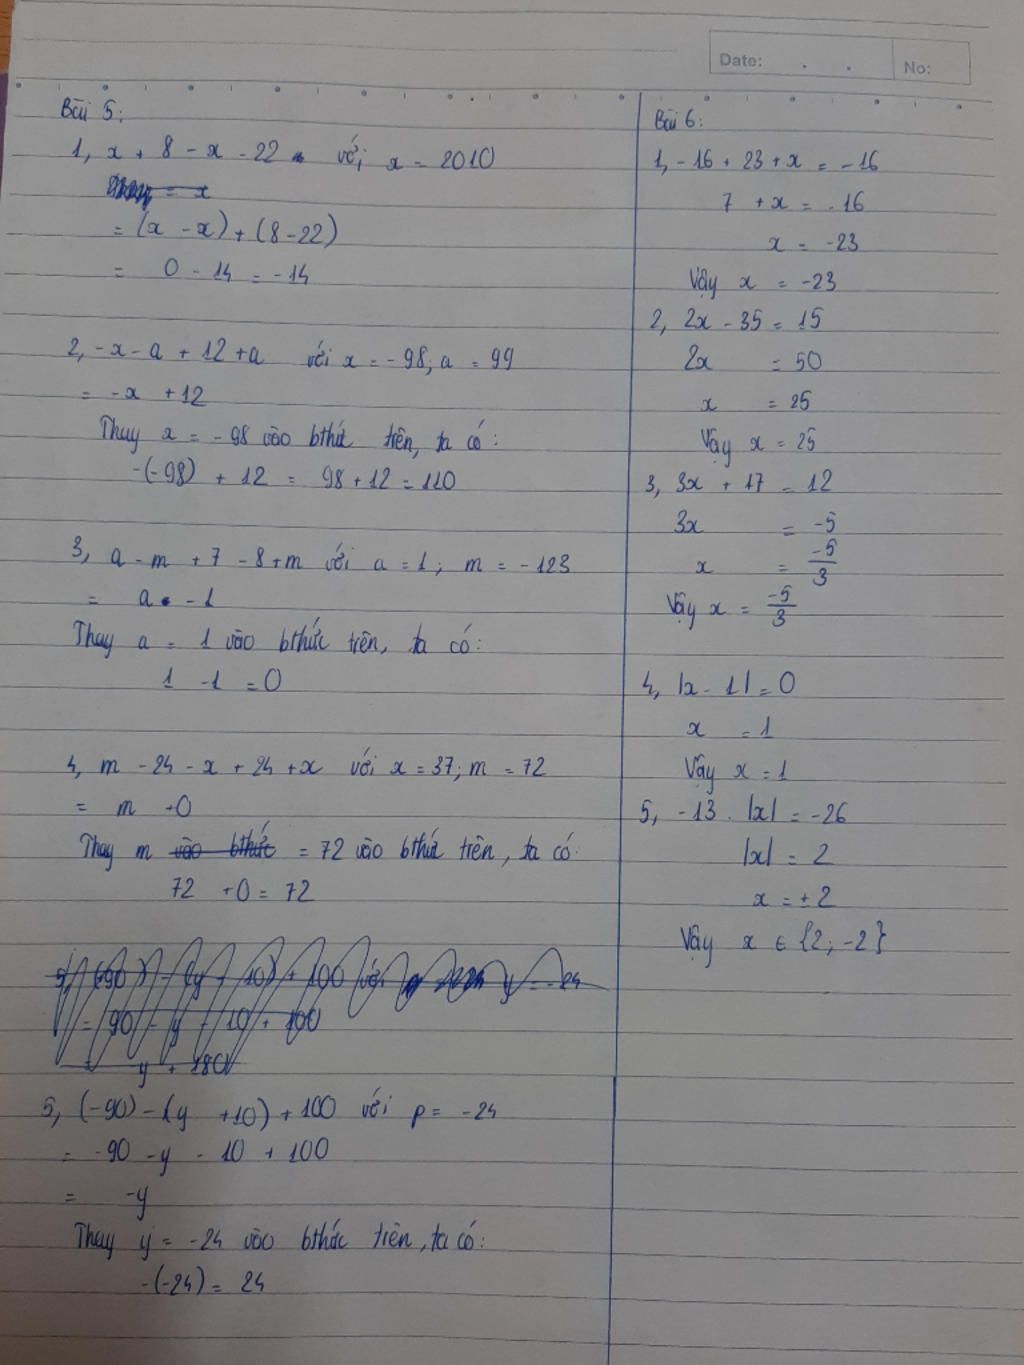 Date: . . No:
Bài 5:
1, x + 8 - x - 22 với x = 2010
= x
= (x - x) + (8 - 22)
= 0 - 14 = -14
2, -x - a + 12 + a với x = -98; a = 99
= -x + 12
Thay x = -98 vào bthức trên, ta có:
-(-98) + 12 = 98 + 12 = 110
3, a - m + 7 - 8 + m với a = 1; m = -123
= a - 1
Thay a = 1 vào bthức trên, ta có:
1 - 1 = 0
4, m - 24 - x + 24 + x với x = 37; m = 72
= m + 0
Thay m vào bthức = 72 vào bthức trên, ta có:
72 + 0 = 72
5, (-90) - (y + 10) + 100 với y = -24
= 90 - y - 10 + 100
= y + 180
5, (-90) - (y + 10) + 100 với p = -24
= -90 - y - 10 + 100
= -y
Thay y = -24 vào bthức trên, ta có:
-(-24) = 24
Bài 6:
1, -16 + 23 + x = -16
7 + x = -16
x = -23
Vậy x = -23
2, 2x - 35 = 15
2x = 50
x = 25
Vậy x = 25
3, 3x + 17 = 12
3x = -5
x = -5/3
Vậy x = -5/3
4, |x - 1| = 0
x = 1
Vậy x = 1
5, -13 . |x| = -26
|x| = 2
x = ±2
Vậy x ∈ {2; -2}